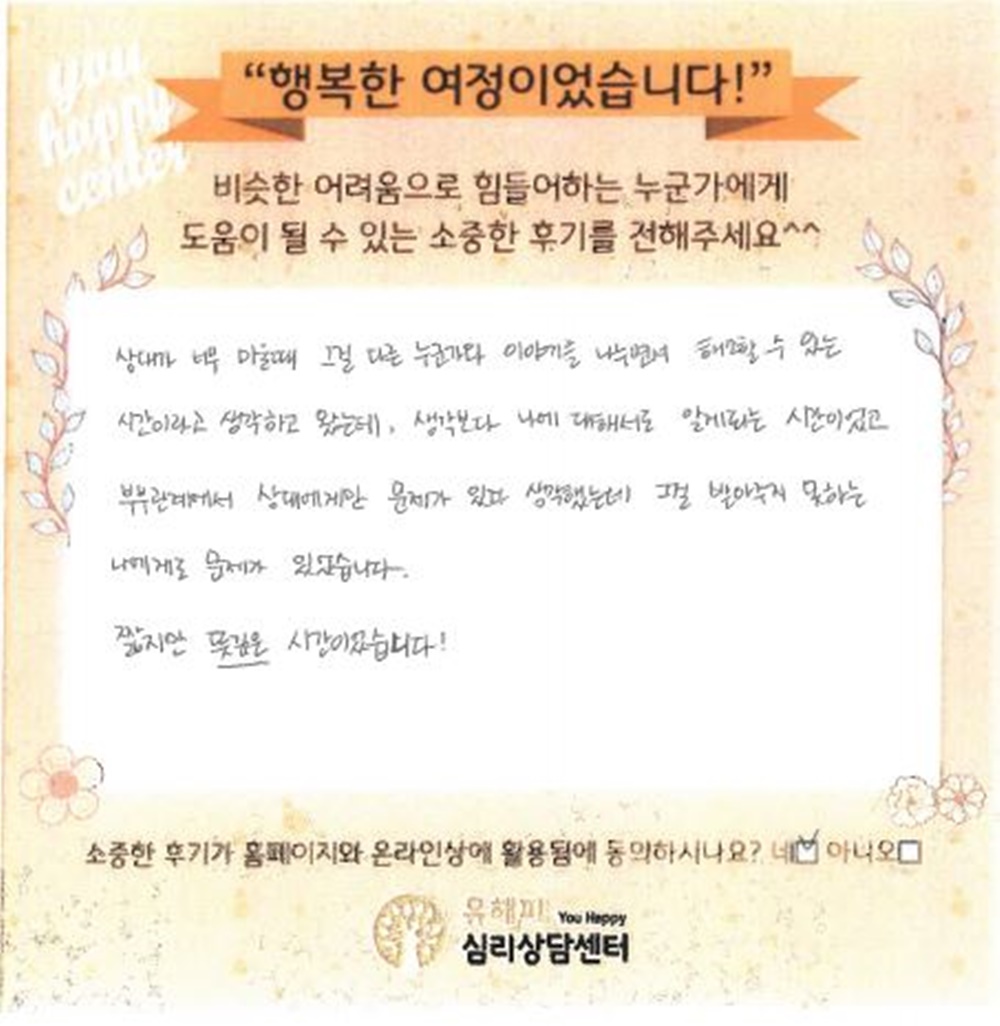 you
happy
center
“행복한 여정이었습니다!”
비슷한 어려움으로 힘들어하는 누군가에게
도움이 될 수 있는 소중한 후기를 전해주세요^^
상대가 너무 미울때 그걸 다른 누군가와 이야기를 나누면서 해소할 수 있는
시간이라고 생각하고 왔는데, 생각보다 나에 대해서도 알게되는 시간이었고
부부관계에서 상대에게만 문제가 있다 생각했는데 그걸 받아주지 못하는
나에게도 문제가 있었습니다.
짧지만 뜻깊은 시간이었습니다!
소중한 후기가 홈페이지와 온라인상에 활용됨에 동의하시나요? 네 아니오
유해피 You Happy
심리상담센터